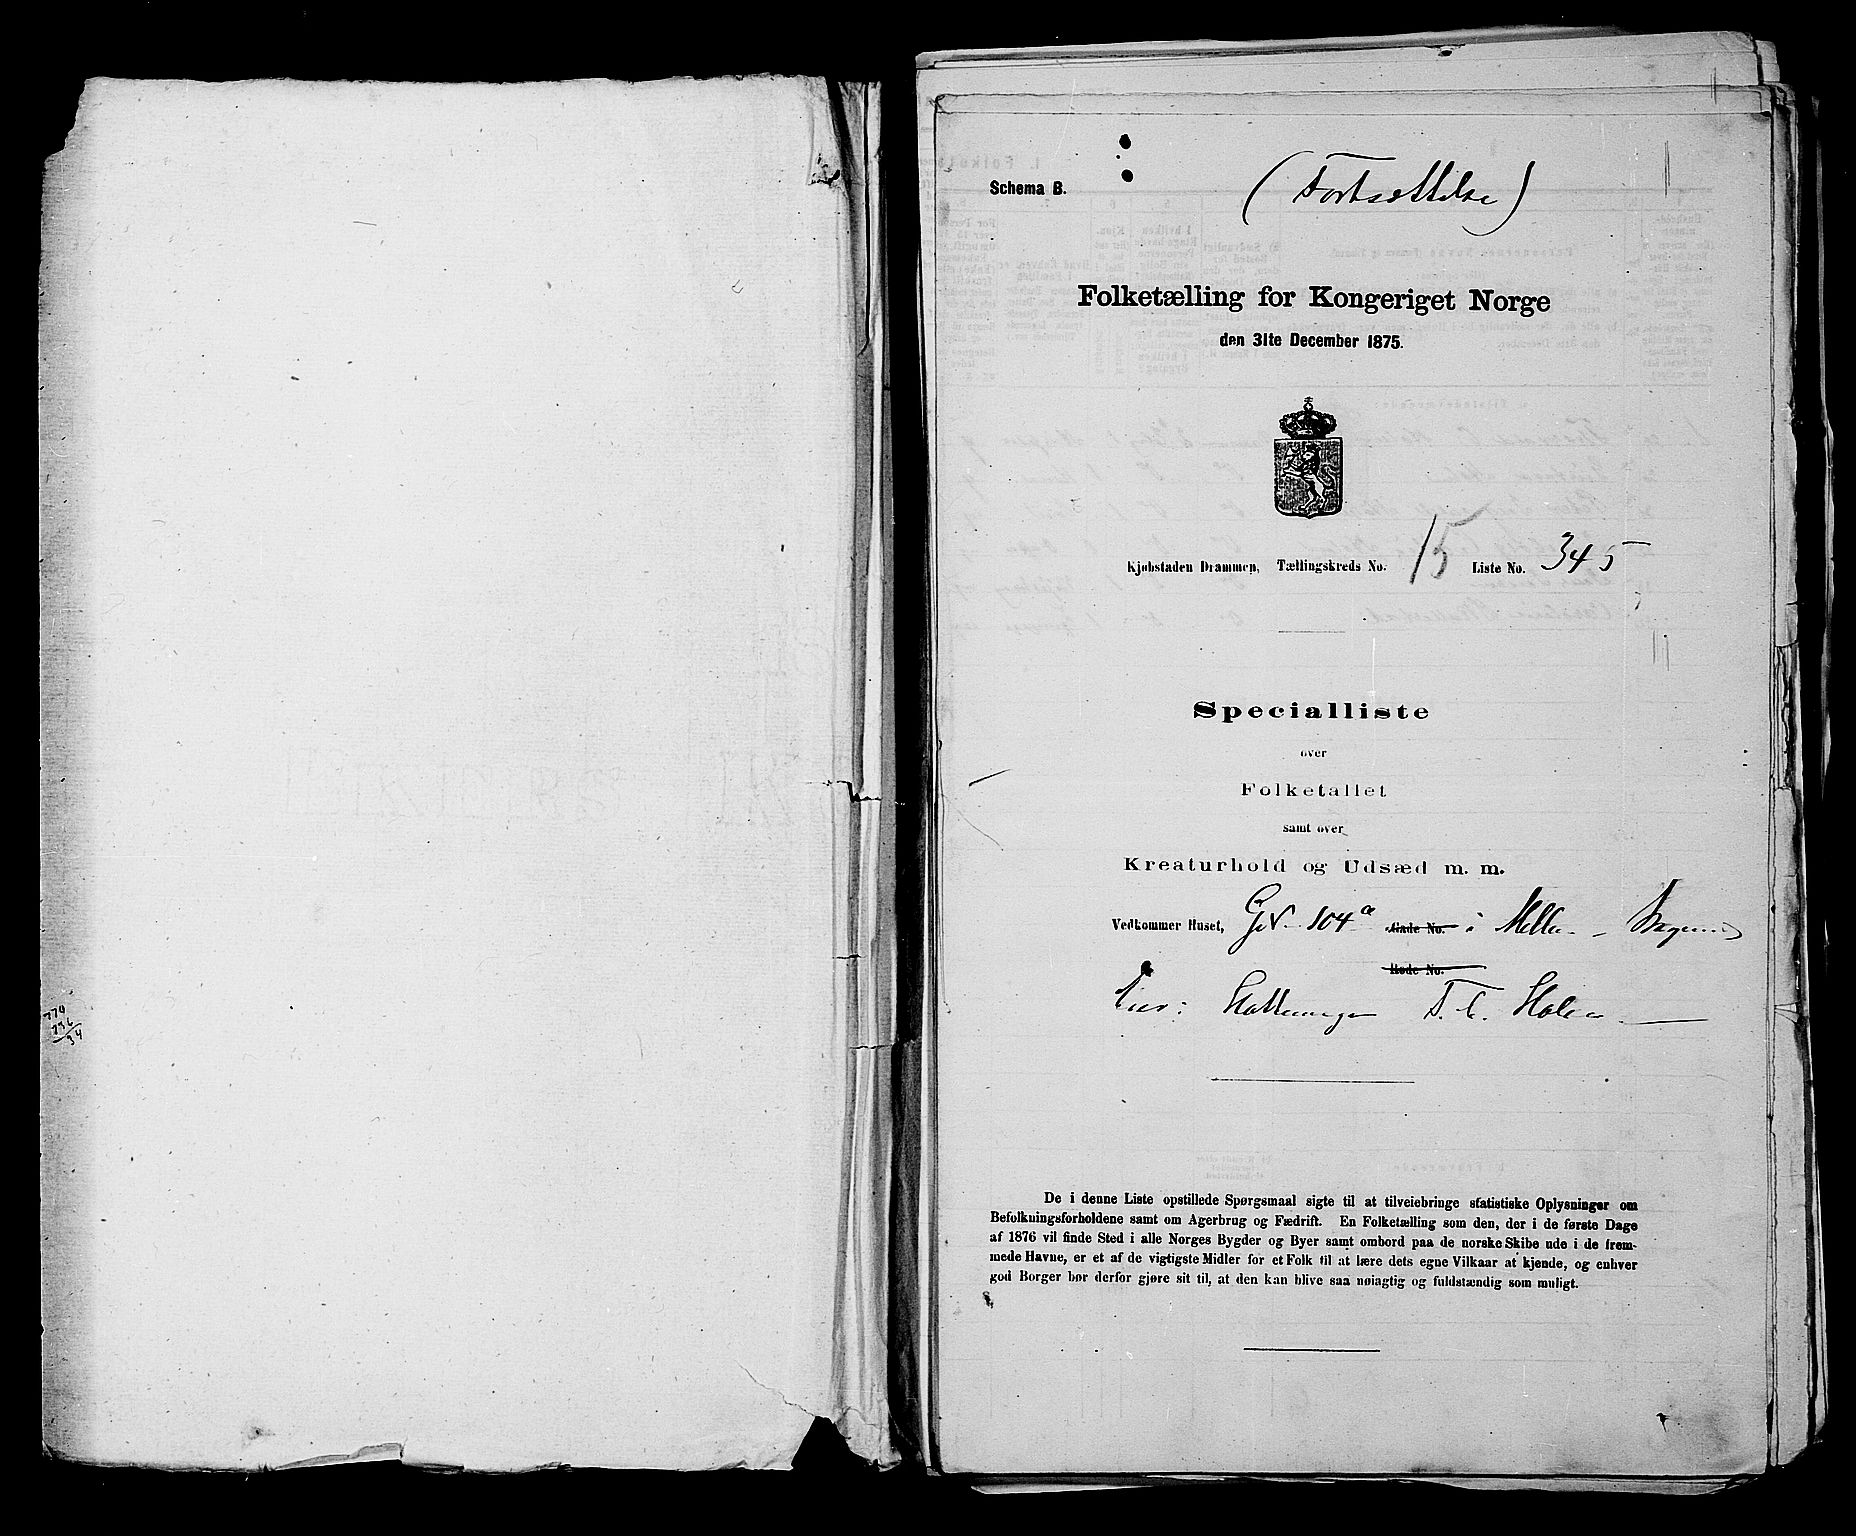 774
736
34
Schema B.
(Fortsættelse)
Folketælling for Kongeriget Norge
den 31te December 1875.
Kjøbstaden Drammen, Tællingskreds No. 15 Liste No. 345
Specialliste
over
Folketallet
samt over
Kreaturhold og Udsæd m. m.
Vedkommer Huset, 104a Gade No. i
Rode No.
Eier: T. C. Holm
De i denne Liste opstillede Spørgsmaal sigte til at tilveiebringe statistiske Oplysninger om
Befolkningsforholdene samt om Agerbrug og Fædrift. En Folketælling som den, der i de første Dage
af 1876 vil finde Sted i alle Norges Bygder og Byer samt ombord paa de norske Skibe ude i de frem-
mede Havne, er et af de vigtigste Midler for et Folk til at lære dets egne Vilkaar at kjende, og enhver
god Borger bør derfor gjøre sit til, at den kan blive saa nøiagtig og fuldstændig som muligt.